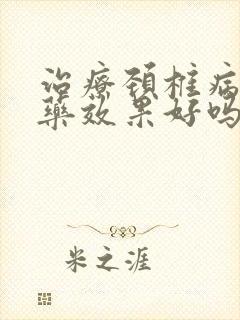 治療頚椎病
藥效果好嗎
米之涯